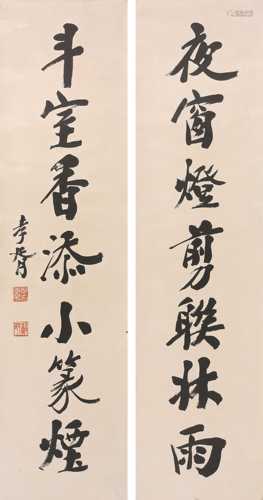 夜窗燈剪聯牀雨
斗室香添小篆煙
孝胥